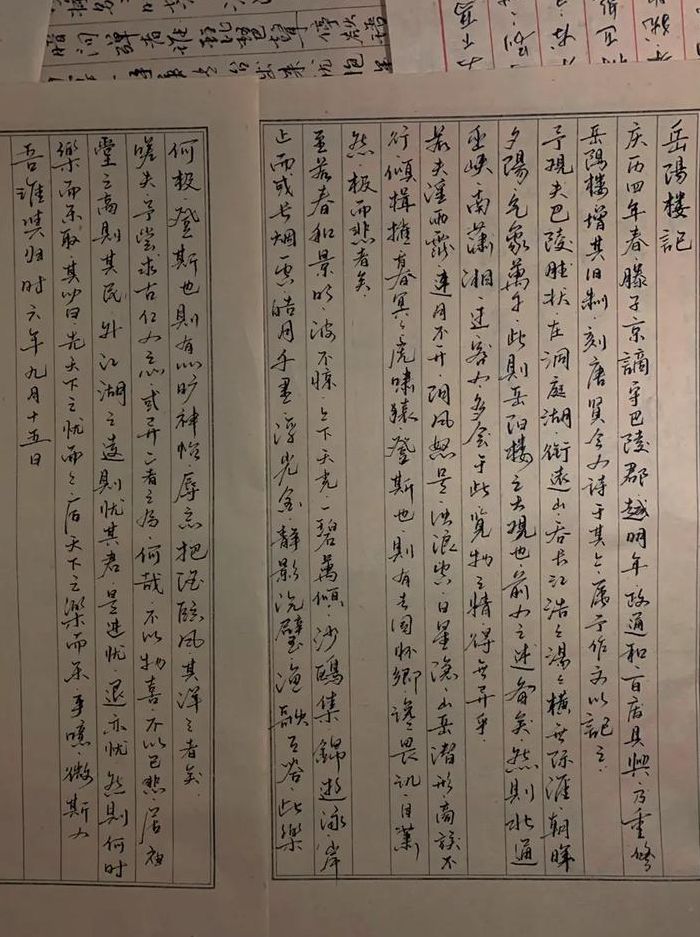 岳陽楼記
庆历四年春·滕子京謫守巴陵郡·越明年·政通和·百店具興·乃重修
岳陽楼·增其旧制·刻唐賢今人诗于其上·属予作文以記之·
予观夫巴陵胜状·在洞庭湖·衔遠山·吞长江·浩々湯々·横无际涯·朝暉
夕陽·气象萬千·此則岳阳楼之大观也·前人之述备矣·然則北通
巫峡·南潇湘·迁客人·多会于此·览物之情·得无异乎·
若夫淫雨霏·連月不开·阴风怒号·浊浪空·日星隐·山岳潜形·商旅不
行·傾楫摧·暮冥々·虎啸猿·登斯也·則有去国怀鄉·谗畏讥·目萧
然·极而悲者矣·
至若春和景明·波不惊·上下天光·一碧萬傾·沙鷗集·錦遊泳·岸
上而或长烟一空·皓月千里·浮光金·静影沉璧·渔歌互答·此樂
何极·登斯也·則有心旷神怡·辱忘·把酒臨风·其洋々者矣·
嗟夫·予尝求古仁人之心·或异二者之为·何哉·不以物喜·不以己悲·居廟
堂之高則其民·外江湖之遠則忧其君·是进忧·退亦忧·然則何时
樂而乐耶·其必曰先天下之忧而々·后天下之樂而乐乎·噫·微斯人
吾谁與归·时六年九月十五日